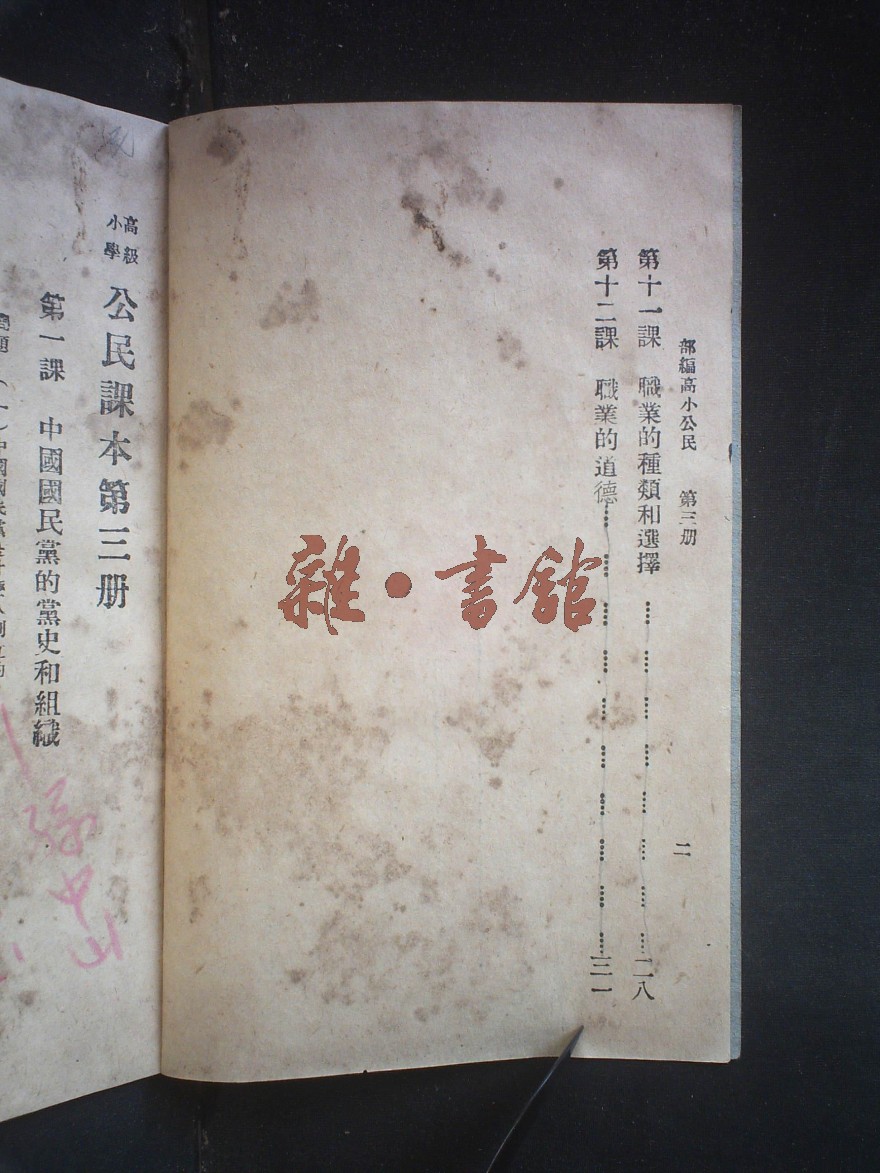 部編高小公民　第三册
二
第十一課　職業的種類和選擇……二八
第十二課　職業的道德……三一
雜・書館
高級
小學
公民課本第三册
第一課　中國國民黨的黨史和組織
孫中山